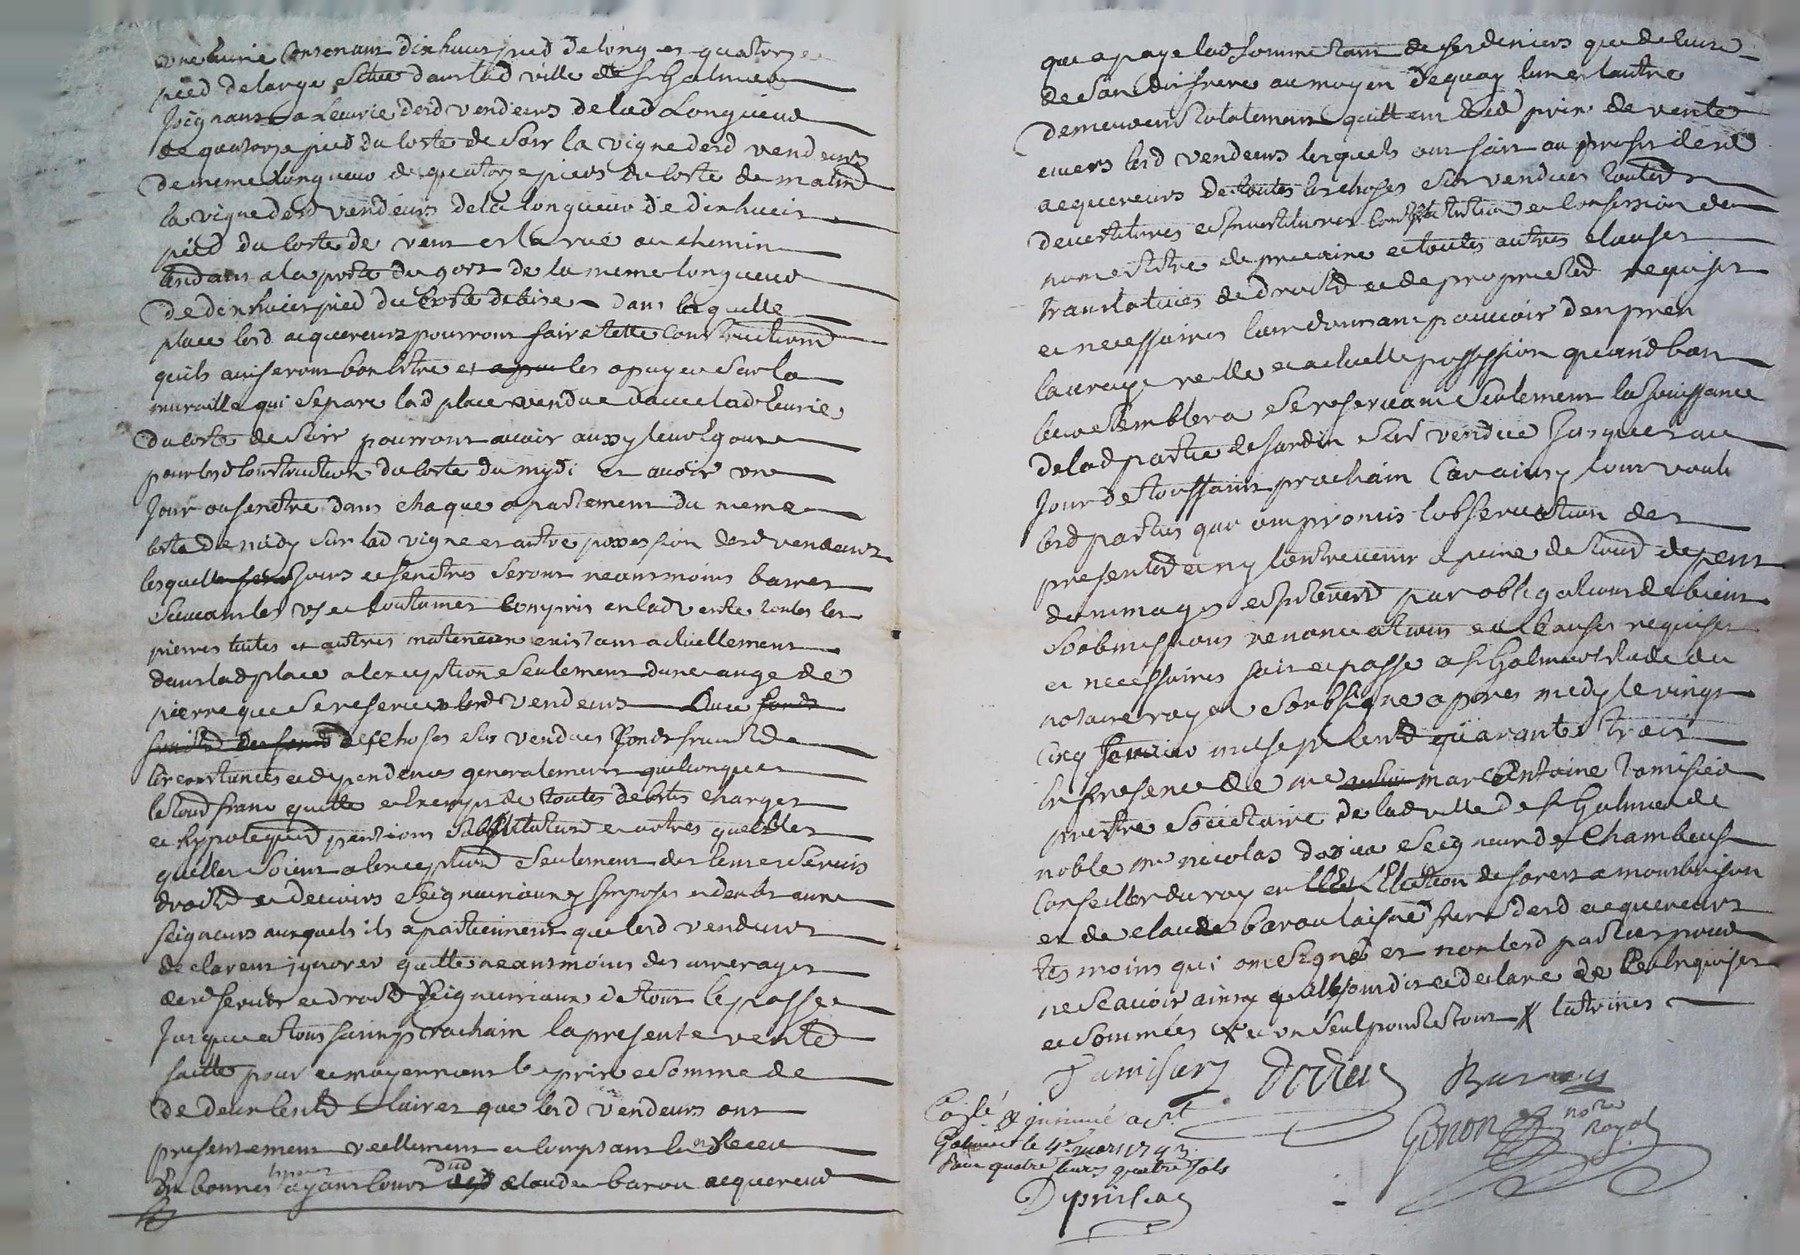 une Eurie Contenant dixhuit pied de long et quatorze
pied de large scitue dans lad ville de St Galmier
Joignant a leurie desd vendeurs de lad Longueur
de quatorze pied du coste de soir la vigne desd vendeurs
de meme longueur de quatorze pieds du coste de matind
la vigne desd vendeurs de la longueur de dixhuit
pied du coste de vent et la rue ou chemin
tendant a la porte du gort de la meme longueur
de dixhuict pied du coste de bise dans laquelle
place lesd acquereurs pourront faire telle Constructiond
quils aviseront bon Estre et les apuyer sur la
muraille qui separe lad place vendue davec lad Eurie
du coste de soir pourront avoir aussy leur Egout
pour lesd Construction du coste du mydi et avoir un
Jour ou fenetre dans chaque apartement du meme
coste de midy sur lad vigne et autre possession desd vendeurs
lesquelles Jours et fenetres seront neantmoins barrés
suivant les us et coutumes Compris en lad vente toutes les
pierres tuiles et autres materieaux existant actuellement
dans lad place a lexception seulement dune auge de
pierre que se reserve lesd vendeurs
des choses sus vendues fonds fruicts
circonstances et dependences generalement quelconques
le tout franc quitte et Exempt de toutes debtes charges
et hypoteques pensions substitutions et autres quelles
quelles soient a lexception seulement des cens et servis
droitd et devoirs seigneuriaux y imposés et deubs aux
seigneurs auxquels ils apartiennent que lesd vendeurs
declarent ignorer quitte neantmoins des arrerages
desd servis et droitd seigneuriaux de tout le passé
Jusques a toussaint prochain la presente vente
faitte pour et moyennant le prix et somme de
de deux Centd livres que lesd vendeurs ont
presentement reellement et comptant receu
en bonnes ayant cours dud claude barou acquereur
qui a payé lad somme tant de ses deniers que de ceux
de son dit frere au moyen de quoy lun et lautre
demeurent totalement quittent dud prix de vente
envers lesd vendeurs lesquels ont fait au profit desd
acquereurs de toutes les choses sus vendues toutes
devestitures et investitures constitution et confession de
nom et titre de precaire et toutes autres clauses
translatives de droitd et de proprieted requises
et necessaires leur donnant pouvoir den pren
la vraye reelle et actuelle possession quand bon
leur semblera se reservant seulement la jouissance
de lad partie de jardin sus vendue Jusques au
Jour de toussaint prochain Car ainsy lont voulu
lesd parties qui ont promis lobservation des
presented et ny contrevenir a peine de tous depens
dommages et interetd par obligations de biens
soubmissions renonciations et clauses requises
et necessaires fait et passe a St Galmier Etude du
notaire royal soubsigne apres medy le vingt
cinq Janvier mil sept centd quarante trois
en presence de mre marc Antoine Tamisier
prestre societaire de lad ville de St Galmier de
noble mre nicolas dodieu seigneur de Chambeuf
Conseiller du roy en Election de forest a montbrison
et de claude barou laisné frere desd acquereurs
tesmoins qui ont signé et non lesd parties pour
ne scavoir ainsy quelles ont dit et declare de ce Enquises
et sommées et un seul pour tout latrines
Tamisier Dodieu Barou
Conlé & insinué a St
Galmier le 4e mars 1743
Pour quatre livres quatre sols
Genon nore
Royal